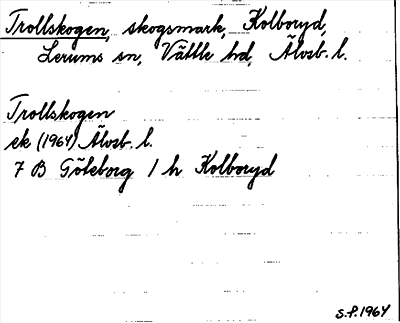 Trollskogen, skogsmark, Kolboryd,
Lerums sn, Vättle hd, Älvsb. l.
Trollskogen
ek (1964) Älvsb. l.
7 B Göteborg 1 h Kolboryd
S.P. 1964